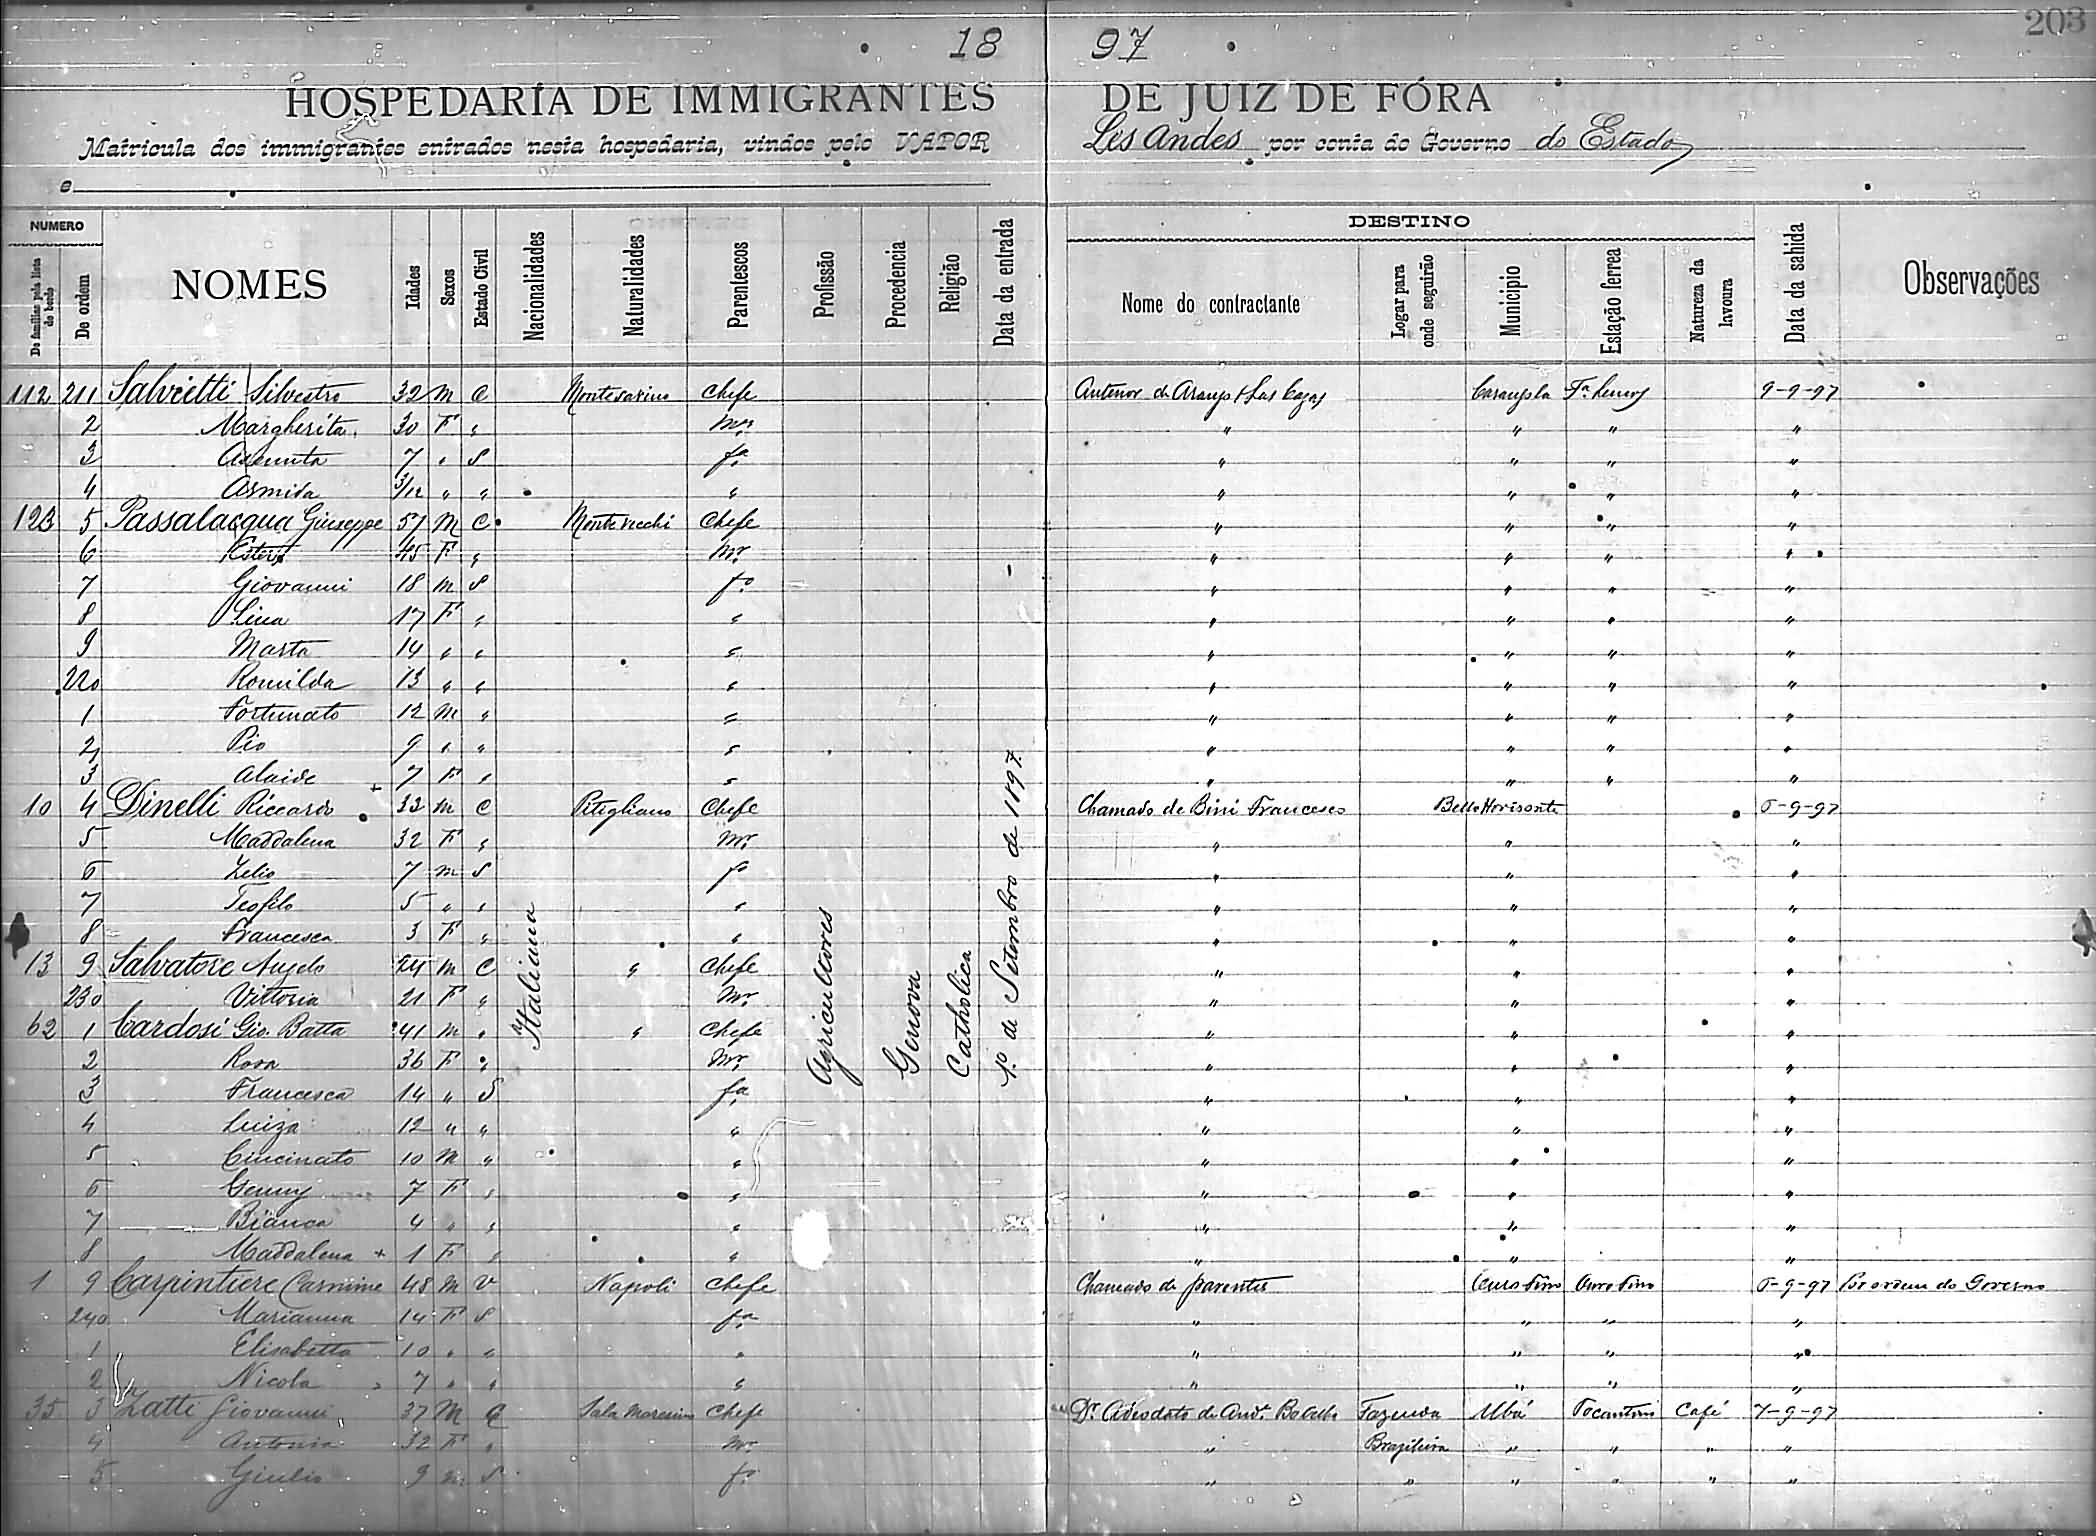 203
18 97
HOSPEDARIA DE IMMIGRANTES DE JUIZ DE FÓRA
Matricula dos immigrantes entrados nesta hospedaria, vindos pelo VAPOR Les Andes por conta do Governo do Estado
e
NUMERO
De familias pela lista de bordo
De ordem
NOMES
Idades
Sexos
Estado Civil
Nacionalidades
Naturalidades
Parentescos
Profissão
Procedencia
Religião
Data da entrada
DESTINO
Nome do contractante
Logar para onde seguirão
Municipio
Estação ferrea
Natureza da lavoura
Data da sahida
Observações
Italiana
Agricultores
Genova
Catholica
1º de Setembro de 1897
112 211 Salvietti Silvestro 32 M C Chefe 9-9-97
2 Margherita 30 F " Mer " " " "
3 Assunta 7 " S fa " " " "
4 3/12 " " " " " " "
123 5 Passalacqua Giuseppe 57 M C Montevecchi Chefe " " " "
6 Ester 45 F " Mr " " " "
7 Giovanni 18 M S fo " " " "
8 Lina 17 F " " " " " "
9 Marta 14 " " " " " " "
220 Romilda 13 " " " " " " "
1 Fortunato 12 M " " " " " "
2 Pio 9 " " " " " " "
3 Alaide 7 F " " " " " "
10 4 Dinelli Riccardo 32 M C Pitigliano Chefe Chamado de Bini Francesco Bello Horisonte 5-9-97
5 Maddalena 32 F " Mr " " "
6 Zelio 7 M S fo " " "
7 Teofilo 5 " " " " " "
8 Francesca 3 F " " " " "
13 9 Salvatore Angelo 24 M C " Chefe " " "
230 Vittoria 21 F " Mr " " "
62 1 Cardosi Gio. Batta 41 M " " Chefe " " "
2 Rosa 36 F " Mr " " "
3 Francesca 14 " S fa " " "
4 Luiza 12 " " " " " "
5 Cincinato 10 M " " " " "
6 Genny 7 F " " " " "
7 Bianca 4 " " " " " "
8 Maddalena + 1 F " " " " "
1 9 Carpintiere Carmine 48 M V Napoli Chefe Chamado de parentes Ouro Fino Ouro Fino 5-9-97 Por ordem do Governo
240 Marianna 14 F S fa " " " "
1 Elisabetta 10 " " " " " " "
2 Nicola 7 " " " " " " "
35 3 Zatti Giovanni 37 M C Chefe Dr. Adeodato de Fazenda Ubá Tocantins Café 7-9-97
4 Antonia 32 F " Mr " Brazileira " " " "
5 Giulio 9 M S fo " " " " " "